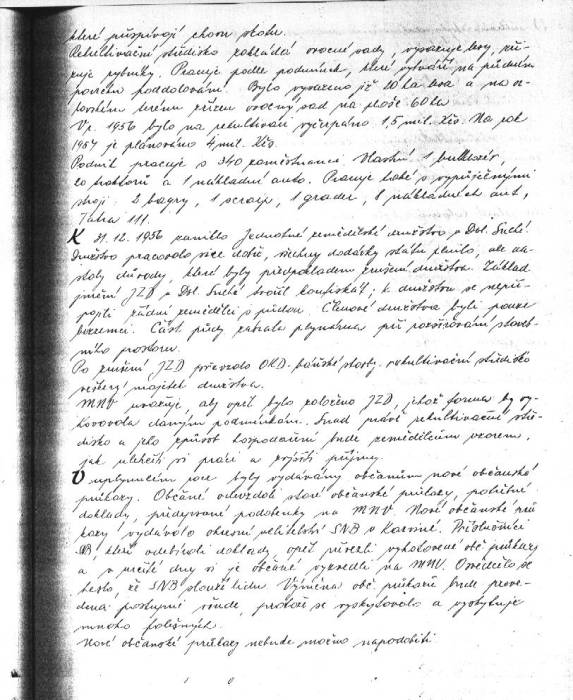 které přispívají chovu skotu.
Rekultivační středisko zakládá ovocné sady, vysazuje lesy, zři-
zuje rybníky. Pracuje podle podmínek, které vytváří na příslušném
území poddolování. Bylo vysazeno již 20 ha lesa a na
terénu zřízen ovocný sad na ploše 60 ha
V r. 1956 bylo na rekultivaci vyčerpáno 1,5 mil. Kčs. Na rok
1957 je plánováno 4 mil. Kčs.
Podnik pracuje s 340 zaměstnanci. Vlastní 1 bulldozer,
20 traktorů a 1 nákladní auto. Pracuje také s vypůjčenými
stroji: 2 bagry, 1 scrapr, 1 grader, 8 nákladních aut,
Tatra 111.
K 31. 12. 1956 zaniklo Jednotné zemědělské družstvo v Dol. Suché.
Družstvo pracovalo sice dobře, všechny dodávky státu plnilo, ale na-
staly důvody, které byly předpokladem zrušení družstva. Základ
jmění JZD v Dol. Suché tvořil konfiskát; k družstvu se nepři-
pojili řádní zemědělci s půdou. Členové družstva byli pouze
bezzemci. Část půdy zabrala plynárna při rozšiřování staveb-
ního prostoru.
Po zrušení JZD převzalo OKD - báňské stavby - rekultivační středisko
veškerý majetek družstva.
MNV uvažuje, aby opět bylo založeno JZD, jehož forma by vy-
hovovala daným podmínkám. Snad právě rekultivační stře-
disko a jeho způsob hospodaření bude zemědělcům vzorem,
jak ulehčiti si práci a zvýšiti příjmy.
V uplynulém roce byly vydávány občanům nové občanské
průkazy. Občané odevzdali staré občanské průkazy, potřebné
doklady, předepsané podobenky na MNV. Nové občanské prů-
kazy vydávalo okresní velitelství SNB v Karviné. Příslušníci
SNB, kteří odebírali doklady, opět přivezli vyhotovené obč. průkazy
a v určité dny si je občané vyzvedli na MNV. Osvědčilo se
heslo, že SNB slouží lidu. Výměna obč. průkazů bude prove-
dena postupně všude, protože se vyskytovalo a vyskytuje
mnoho falešných.
Nové občanské průkazy nebude možno napodobiti